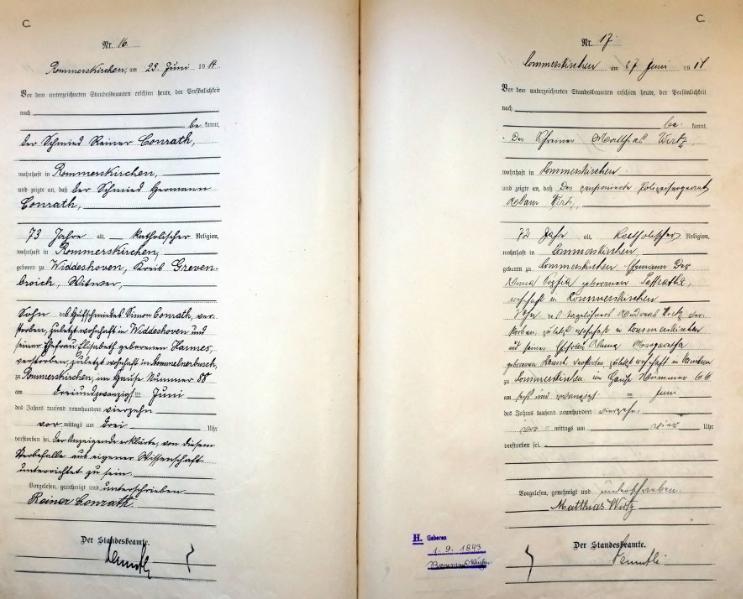 C.
Nr. 16
Rommerskirchen, am 23. Juni 1914
Vor dem unterzeichneten Standesbeamten erschien heute, der Persönlichkeit
nach
be kannt,
der Schmied Reiner Conrath,
wohnhaft in Rommerskirchen,
und zeigte an, daß der Schmied Hermann
Conrath,
73 Jahre alt, katholischer Religion,
wohnhaft in Rommerskirchen,
geboren zu Widdeshoven, Kreis Greven-
broich, Witwer,
Sohn des Hufschmiedes Simon Conrath, ver-
storben, zuletzt wohnhaft in Widdeshoven und
seiner Ehefrau Elisabeth geborenen Harmes,
verstorben, zuletzt wohnhaft in
zu Rommerskirchen, im Hause Nummer 88
am dreiundzwanzigsten Juni
des Jahres tausend neunhundert vierzehn
vor mittags um drei Uhr
verstorben sei. Der Anzeigende erklärte, von diesem
Sterbefalle aus eigener Wissenschaft
unterrichtet zu sein.
Vorgelesen, genehmigt und unterschrieben
Reiner Conrath.
Der Standesbeamte.
C.
Nr. 17
Rommerskirchen am 27 Juni 1914
Vor dem unterzeichneten Standesbeamten erschien heute, der Persönlichkeit
nach
be kannt,
Der Schreiner Matthias Wirtz,
wohnhaft in Rommerskirchen
und zeigte an, daß Der pensionierte Polizeisergeant
Adam Wirtz,
72 Jahre alt, Katholischer Religion,
wohnhaft in Rommerskirchen
geboren zu Rommerskirchen Ehemann Der
Anna Sophia geborenen
wohnhaft in Rommerskirchen
Sohn des Tagelöhners Wirtz ver-
storben, zuletzt wohnhaft in Rommerskirchen
und seiner Ehefrau Anna Margaretha
geborenen verstorben, zuletzt wohnhaft in
zu Rommerskirchen im Hause Nummer 66
am sechs und zwanzigsten Juni
des Jahres tausend neunhundert vierzehn
mittags um vier Uhr
verstorben sei.
Vorgelesen, genehmigt und unterschrieben.
Matthias Wirtz
H. Geboren
1. 9. 1843
Der Standesbeamte.